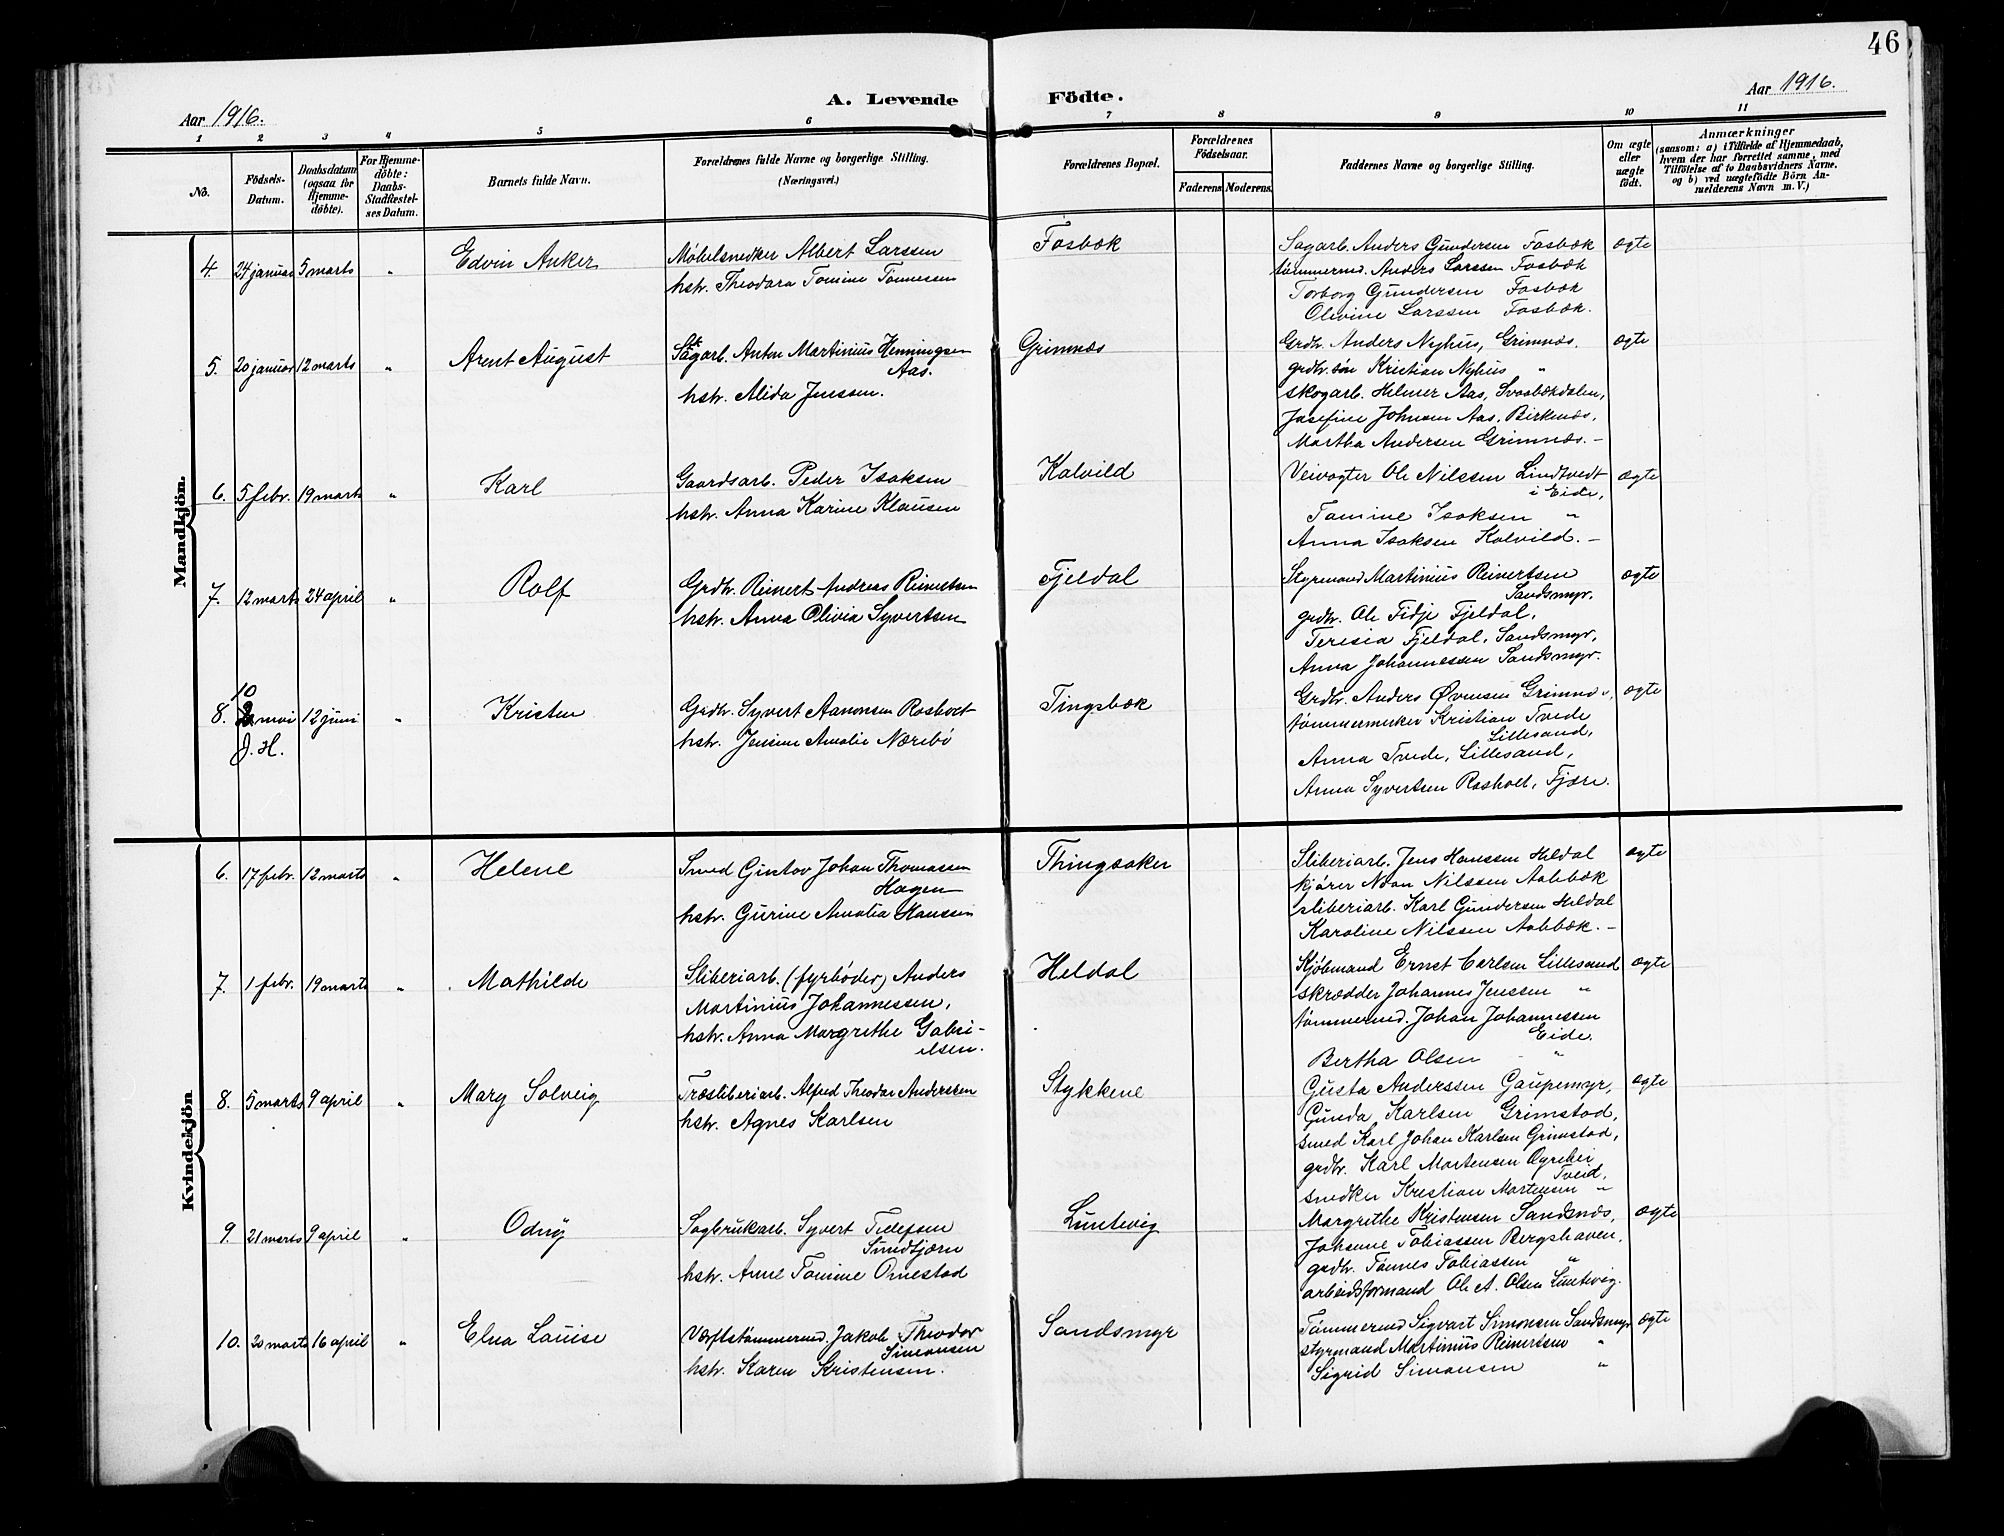 46
Aar 1916.
A. Levende Födte.
Aar 1916.
1 2 3 4 5 6 7 8 9 10 11
No.
Födsels-Datum.
Daabsdatum (ogsaa for Hjemme-døbte).
For Hjemme-døbte: Daabs-Stadfæstel-ses Datum.
Barnets fulde Navn.
Forældrenes fulde Navne og borgerlige Stilling.
(Næringsvei.)
Forældrenes Bopæl.
Forældrenes Födselsaar.
Faderens. Moderens.
Faddernes Navne og borgerlige Stilling.
Om ægte eller uægte födt.
Anmærkninger
(saasom: a) i Tilfælde af Hjemmedaab,
hvem der har forrettet samme, med
Tilföielse af to Daabsvidners Navne,
og b) ved uægtefødte Börn An-
melderens Navn m. V.)
Mandkjön.
4. 24 januar 5 marts " Edvin Anker
Møbelsnedker Albert Larssen
hstr. Theodora Tomine Tønnessen
Fosbæk
Sagarb. Anders Gundersen Fosbæk
tømmermd. Anders Larssen Fosbæk
Torborg Gundersen Fosbæk
Olivine Larssen Fosbæk.
ægte
5. 20 januar 12 marts " Arent August
Sagarb. Anton Martinius Henningsen
Aas.
hstr. Alida Jenssen.
Grimnæs
Grdbr. Anders Nyhus, Grimnæs.
grdbr.søn Kristian Nyhus "
skogarb. Helmer Aas, Svaabækdalen,
Josefine Johnsen Aas, Birkenæs,
Martha Andersen Grimnæs. –
ægte
6. 5 febr. 19 marts " Karl
Gaardsarb. Peder Isaksen
hstr. Anna Karine Klausen
Kalvild
Veivogter Ole Nilssen Lindtvedt
i Eide,
Tomine Isaksen "
Anna Isaksen Kalvild. –
ægte
7. 12 marts 24 april " Rolf
Grdbr. Reinert Andreas Reinertsen
hstr. Anna Olivia Syvertsen
Fjeldal
Styrmand Martinius Reinertsen
Sandsmyr.
grdbr. Ole Fidje Fjeldal,
Teresia Fjeldal, Sandsmyr,
Anna Johannessen Sandsmyr.
ægte
10
8. mai 12 juni " Kristen
J. H.
Grdbr. Syvert Aanonsen Rosholt
hstr. Jensine Amalie Nærebø
Tingsbæk
Grdbr. Anders Øvensen
tømmermerker Kristian Tvede
Lillesand,
Anna Tvede, Lillesand,
Anna Syvertsen Rosholt, Fjære.
ægte
Kvindekjön
6. 17 febr. 12 marts " Helene
Smed Gustav Johan Thomassen
Hagen
hstr. Gurine Amalia Hanssen
Thingsaker
Sliberiarb. Jens Hanssen Heldal
kjører Noan Nilssen Aabbæk
sliberiarb. Karl Gundersen Heldal
Karoline Nilssen Aabbæk. –
ægte
7. 1 febr. 19 marts " Mathilde
Sliberiarb. (fyrbøder) Anders
Martinius Johannessen,
hstr. Anna Margrethe Gabri-
elsen.
Heldal
Kjøbmand Ernst Carlsen Lillesand
skrædder Johannes Jenssen "
tømmermd. Johan Johannessen
Eide.
Bertha Olsen "
ægte
8. 5 marts 9 april " Mary Solveig
Træsliberiarb. Alfred Theodor Anderssen
hstr. Agnes Karlsen
Stykkene
Gusta Anderssen Gaupemyr,
Gunda Karlsen Grimstad,
smed Karl Johan Karlsen Grimstad,
grdbr. Karl Mortensen Øygrebei
Tveid,
snedker Kristian Mortensen "
ægte
9. 21 marts 9 april " Odny
Sagbruksarb. Syvert Tellefsen
Sundtjørn
hstr. Anne Tomine Omestad
Luntevig
Margrethe Kristensen Sandsnæs,
Johanne Tobiassen Bergshaven,
grdbr. Tønnes Tobiassen "
arbeidsformand Ole A. Olsen Luntevig.
ægte
10. 20 marts 16 april " Elna Louise
Værftstømmermd. Jakob Theodor
Simonsen
hstr. Karen Kristensen.
Sandsmyr
Tømmermd Sigvart Simonsen Sandsmyr
styrmand Martinius Reinertsen "
Sigrid Simonsen "
ægte